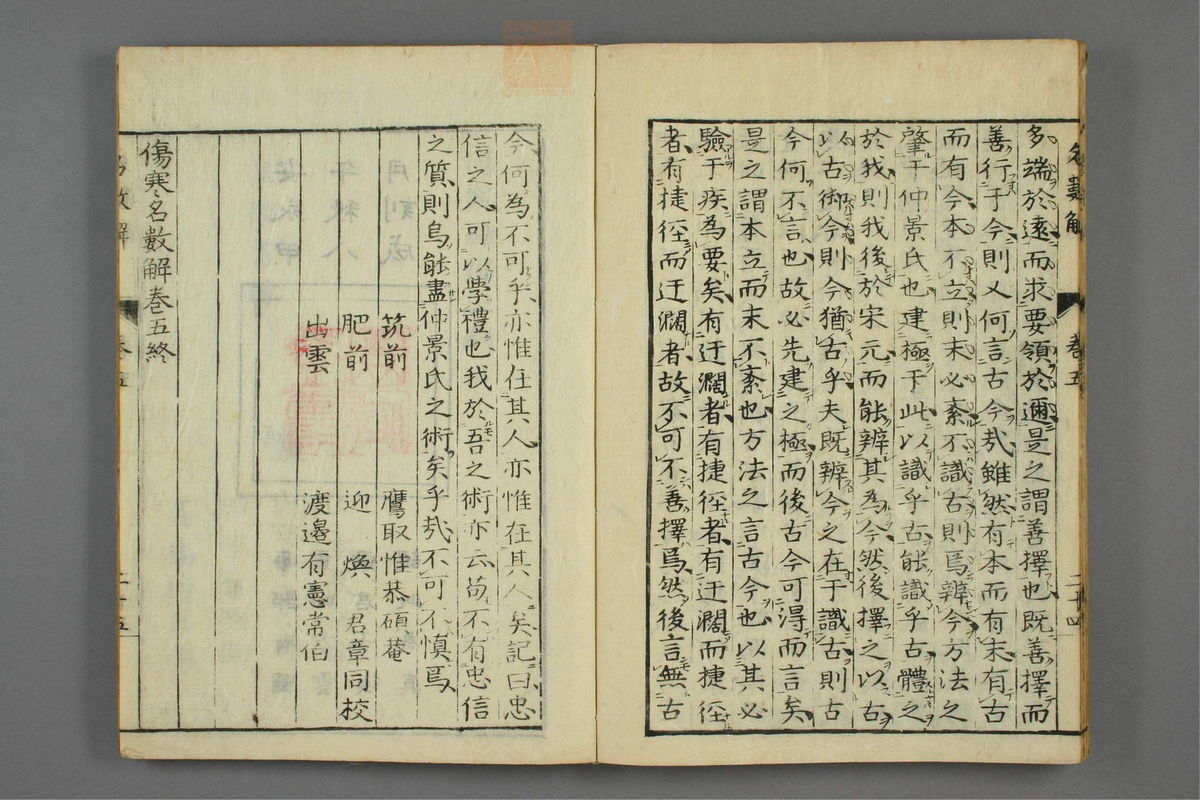 多端於遠而求要領於邇是之謂善擇也既善擇而
善行于今則又何言古今哉雖然有本而有末有古
而有今本不立則末必紊不識古則焉辨今方法之
肇于仲景氏也建極于此以識乎古能識乎古體之
於我則我後於宋元而能辨其為今然後擇之以古
以古御今則今猶古乎夫既辨今之在于識古則古
今何不言也故必先建之極而後古今可得而言矣
是之謂本立而末不紊也方法之言古今也以其必
驗于疾為要矣有迂濶者有捷徑者有迂濶而捷徑
者有捷徑而迂濶者故不可不善擇焉然後言無古
名數解 卷五 二十四
今何為不可乎亦惟在其人亦惟在其人矣記曰忠
信之人可以學禮也我於吾之術亦云苟不有忠信
之質則烏能盡仲景氏之術矣乎哉不可不慎焉
筑前 鷹取惟恭碩菴
肥前 迎 煥君章同校
出雲 渡邉有憲常伯
傷寒名數解卷五終
名數解 卷五 二十五